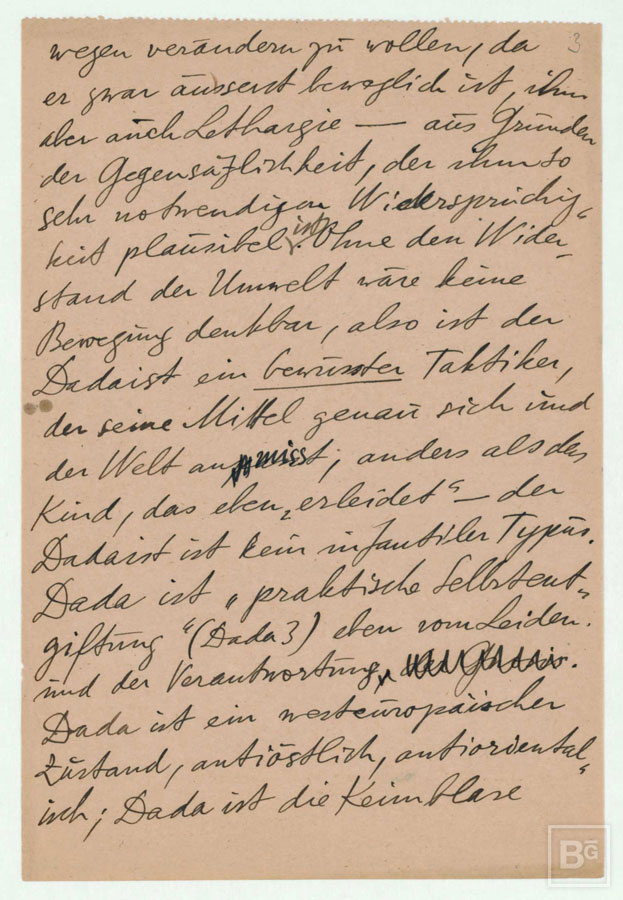 3
wegen verändern zu wollen, da
er zwar äusserst beweglich ist, ihm
aber auch Lethargie — aus Gründen
der Gegensäzlichkeit, der ihm so
sehr notwendigen Widersprüchig-
keit plausibel ist. Ohne den Wider-
stand der Umwelt wäre keine
Bewegung denkbar, also ist der
Dadaist ein bewusster Taktiker,
der seine Mittel genau sich und
der Welt anmisst, anders als das
Kind, das eben „erleidet“ — der
Dadaist ist kein infantiler Typus.
Dada ist „praktische Selbstent-
giftung“ (Dada 3) eben vom Leiden.
und der Verantwortung.
Dada ist ein westeuropäischer
Zustand, antiöstlich, antioriental-
isch; Dada ist die Keimblase
BG